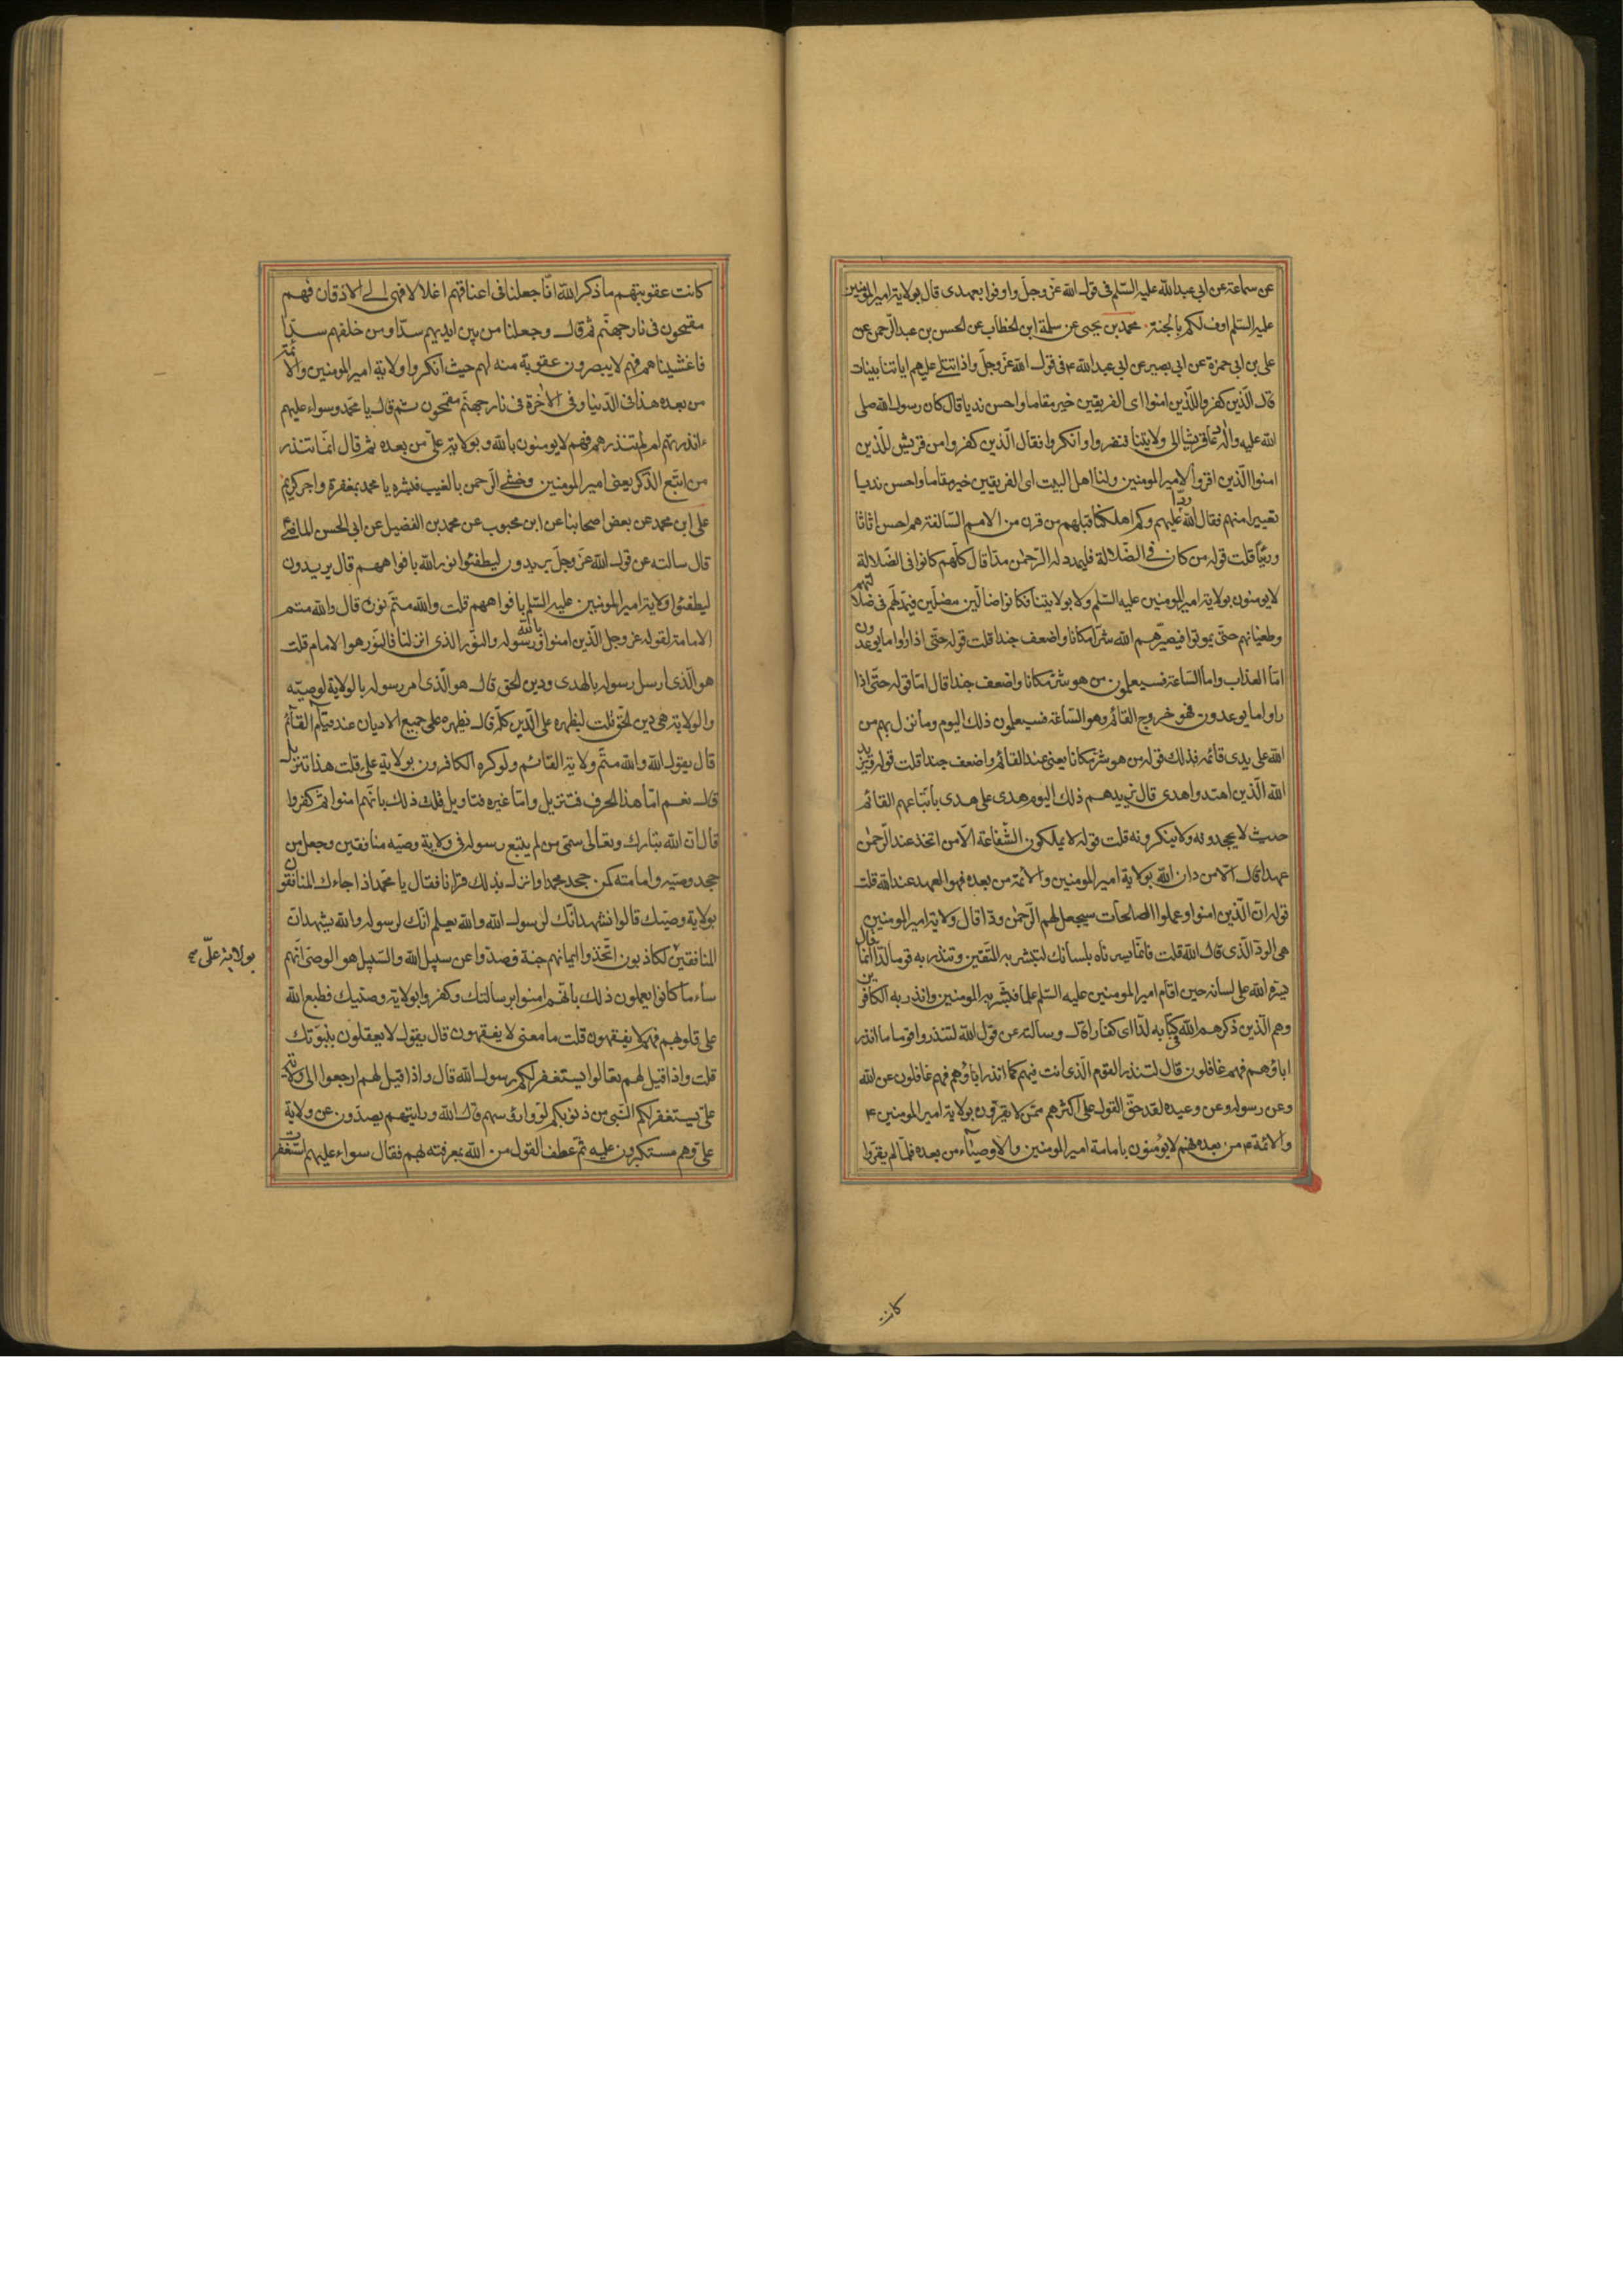 عن سماعة عن ابي عبد الله عليه السّلم فى قول الله عزّ وجلّ واوفوا بعهدى قال بولاية امير المومنين
عليه السّلم اوف لكم بالجنة محمد بن يحيى عن سلمة ابن الخطاب عن الحسن بن عبد الرّحمن عن
على بن ابى حمزة عن ابى بصير عن ابى عبد الله ع فى قول الله عزّ وجلّ واذا تتلى عليهم اياتنا بينات
قال الّذين كفروا للّذين امنوا اى الفريقين خير مقاما واحسن نديا قال كان رسول الله صلى
الله عليه واله دعا قريشا الى ولايتنا فنفروا وانكروا فقال الّذين كفروا من قريش للّذين
امنوا الّذين اقروا لامير المومنين ولنا اهل البيت اى الفريقين خير مقاما واحسن نديا
تعييرا منهم فقال الله ردا عليهم وكم اهلكنا قبلهم من قرن من الامم السّالفة هم احسن اثاثا
ورئيا قلت قوله من كان فى الضّلالة فليمدد له الرّحمن مدّا قال كلّهم كانوا فى الضّلالة
لايومنون بولاية امير المومنين عليه السّلم ولا بولايتنا فكانوا ضالّين مضلّين فيمدّ لهم فى ضلالتهم
وطغيانهم حتّى يموتوا فيصيّرهم الله شرّا مكانا واضعف جندا قلت قوله حتّى اذا راوا ما يوعدون
امّا العذاب واما السّاعة فسيعلمون من هو شرّ مكانا واضعف جندا قال امّا قوله حتّى اذا
راوا ما يوعدون فهو خروج القائم وهو السّاعة فسيعلمون ذلك اليوم وما نزل بهم من
الله على يدى قائمه فذلك قوله من هو شرّ مكانا يعنى عند القائم واضعف جندا قلت قوله ويزيد
الله الّذين اهتدوا هدى قال يزيدهم ذلك اليوم هدى على هدى باتّباعهم القائم
حيث لا يجحدونه ولا ينكرونه قلت قوله لا يملكون الشّفاعة الّا من اتّخذ عند الرّحمن
عهدا قال الّا من دان الله بولاية امير المومنين والائمّة من بعده فهو العهد عند الله قلت
قوله انّ الّذين امنوا وعملوا الصالحات سيجعل لهم الرّحمن ودّا قال ولاية امير المومنين
هى الودّ الّذى قال الله قلت فانّما يسرناه بلسانك لتبشر به المتّقين وتنذر به قوما لدّا قال انّما
يسره الله على لسانه حين اقام امير المومنين عليه السّلم علما فبشّر به المومنين وانذر به الكافرين
وهم الّذين ذكرهم الله فى كتابه لدّا اى كفارا قال وسالته عن قول الله لتنذر قوما ما انذر
اباؤهم فهم غافلون قال لتنذر القوم الّذى انت فيهم كما انذر اباؤهم فهم غافلون عن الله
وعن رسوله وعن وعيده لقد حقّ القول على اكثرهم ممّن لا يقرّون بولاية امير المومنين ع
والائمّة ع من بعده فهم لايؤمنون بامامة امير المومنين والاوصيآء من بعده فلمّا لم يقرّوا
كانت
كانت عقوبتهم ما ذكر الله انّا جعلنا فى اعناقهم اغلالا فهى الى الاذقان فهم
مقمحون فى نار جهنّم ثمّ قال وجعلنا من بين ايديهم سدّا ومن خلفهم سدّا
فاغشيناهم فهم لايبصرون عقوبة منه لهم حيث انكروا ولاية امير المومنين والائمّة
من بعده هذا فى الدّنيا وفى الاخرة فى نار جهنّم مقمحون ثم قال يا محمّد وسواء عليهم
ءانذرتهم ام لم تنذرهم فهم لايومنون بالله وبولاية علىّ من بعده ثم قال انّما تنذر
من اتّبع الذّكر يعنى امير المومنين وخشى الرّحمن بالغيب فبشره يا محمد بمغفرة واجر كريم
على ابن محمد عن بعض اصحابنا عن ابن محبوب عن محمد بن الفضيل عن ابى الحسن الماضى
قال سالته عن قول الله عزّ وجلّ يريدون ليطفئوا نور الله بافواههم قال يريدون
ليطفئوا ولاية امير المومنين عليه السّلم بافواههم قلت والله متمّ نوره قال والله متم
الامامة لقوله عز وجل الّذين امنوا بالله ورسوله والنّور الذى انزلنا فالنّور هو الامام قلت
هو الّذى ارسل رسوله بالهدى ودين الحق قال هو الّذى امر رسوله بالولاية لوصيّه
والولاية هى دين الحقّ قلت ليظهره على الدّين كلّه قال يظهره على جميع الاديان عند قيام القآئم
قال يقول الله والله متمّ ولاية القائم ولو كره الكافرون بولاية على قلت هذا تنزيل
قال نعم امّا هذا الحرف فتنزيل وامّا غيره فتاويل قلت ذلك بانّهم امنوا ثمّ كفروا
قال انّ الله تبارك وتعالى سمّى من لم يتبع رسوله فى ولاية وصيّه منافقين وجعل من
جحد وصيّه وامامته كمن جحد محمدا وانزل بذلك قرانا فقال يا محمّد اذا جاءك المنافقون
بولاية وصيّك قالوا نشهد انّك لرسول الله والله يعلم انّك لرسوله والله يشهد انّ
المنافقين لكاذبون اتّخذوا ايمانهم جنة فصدّوا عن سبيل الله والسّبيل هو الوصى انّهم
بولاية علىّ صح
ساء ما كانوا يعملون ذلك بانّهم امنوا برسالتك وكفروا بولاية وصيّك فطبع الله
على قلوبهم فهم لا يفقهون قلت ما معنى لا يفقهون قال يقول لا يعقلون بنبوّتك
قلت واذا قيل لهم تعالوا يستغفر لكم رسول الله قال واذا قيل لهم ارجعوا الى ولاية
علىّ يستغفر لكم النّبى من ذنوبكم لوّوا رؤسهم قال الله ورايتهم يصدّون عن ولاية
علىّ وهم مستكبرون عليه ثمّ عطف القول من الله بمعرفته بهم فقال سواء عليهم استغفرت